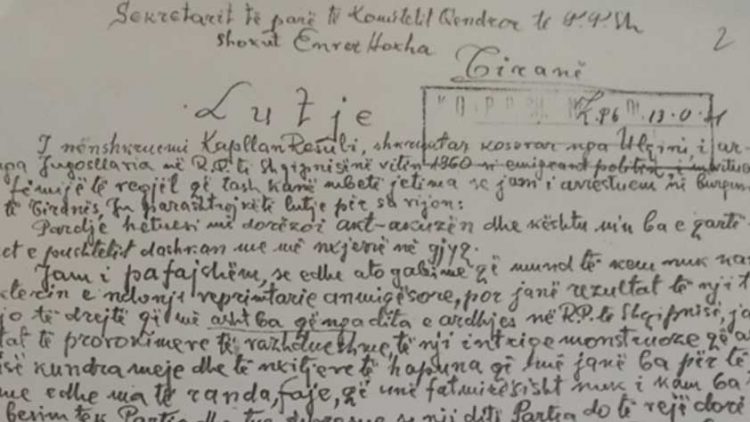 Sekretarit të parë të Komitetit Qendror të P.P.Sh
shokut Enver Hoxha
2
Tiranë
Lutje
I nënshkruemi Kapllan Resuli, shkrimtar kosovar nga Ulqini, i ar-
nga Jugosllavia në R.P. të Shqipnisë në vitin 1960 si emigrant politik, i
fëmijë të vegjël që tash kanë mbetë jetima se jam i arrestuem në burgun
të Tiranës, Ju parashtroj këtë lutje për sa vijon:
Pardje hetuesi më dorëzoi akt-akuzën dhe kështu m'u ba e qartë
et e pushtetit dashkan me më nxjerrë në gjyq.
Jam i pafajshëm, se edhe ato gabime që mund të kem nuk
e ndonji veprimtarie anmiqësore, por janë rezultat të nji
jo të drejtë që më asht ba që nga dita e ardhjes në R.P. të Shqipnisë, ja
tat të provokimeve të vazhdueshme, të nji intrige monstruoze që
kundra meje dhe të nxitjeve të hapuna që më janë ba për të
me edhe ma të randa, faje, që unë fatmirësisht nuk i kam ba
besim tek Partia dhe se nji ditë Partia do të vejë dorë